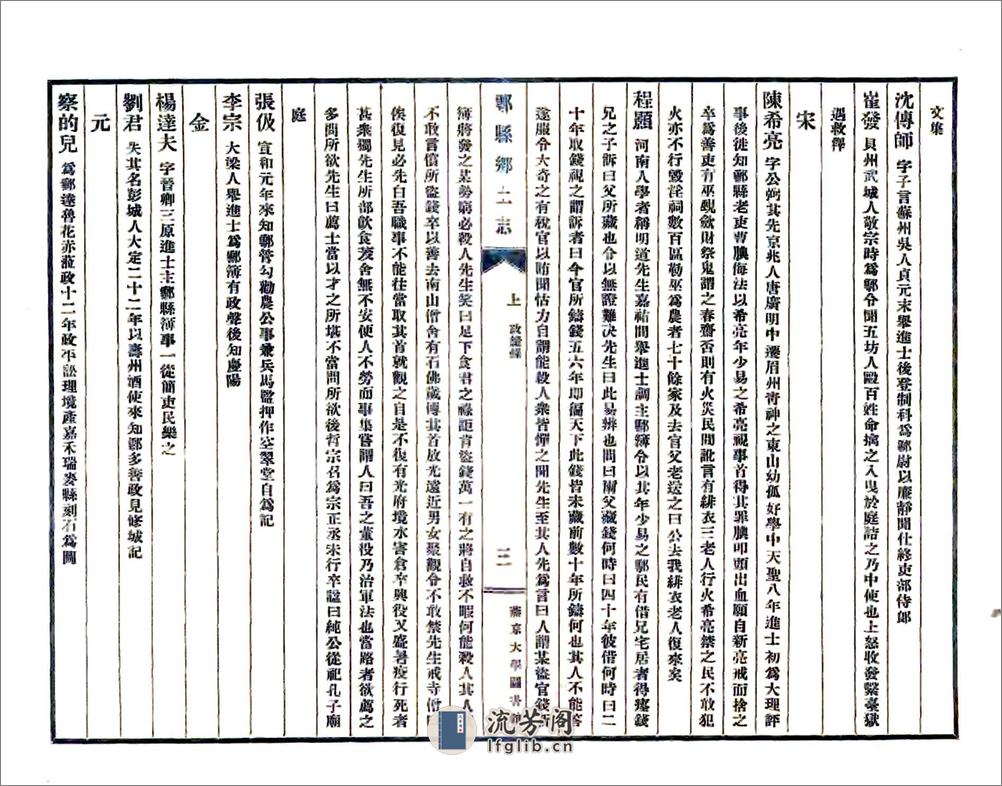 文集
沈傳師 字子言蘇州吳人貞元末舉進士後登制科爲鄠尉以廉靜聞仕終吏部侍郎
崔發 貝州武城人敬宗時爲鄠令聞五坊人毆百姓命擒之入曳於庭詰之乃中使也上怒收發繫臺獄
遇赦釋
宋
陳希亮 字公弼其先京兆人唐廣明中遷眉州靑神之東山幼孤好學中天聖八年進士初爲大理評
事後徙知鄠縣老吏曹腆侮法以希亮年少易之希亮視事首得其罪腆叩頭出血願自新亮戒而捨之
卒爲善吏有巫覡歛財祭鬼謂之春齋否則有火災民間訛言有緋衣三老人行火希亮禁之民不敢犯
火亦不行毀淫祠數百區勒巫爲農者七十餘家及去官父老送之曰公去我緋衣老人復來矣
程顥 河南人學者稱明道先生嘉祐間舉進士調主鄠縣簿令以其年少易之鄠民有借兄宅居者得瘞錢
兄之子訴曰父所藏也令以無證難决先生曰此易辨也問曰爾父藏錢何時曰四十年彼借何時曰二
十年取錢視之謂訴者曰今官所鑄錢五六年卽徧天下此錢皆未藏前數十年所鑄何也其人不能答
遂服令大奇之有稅官以賄聞怙力自謂能殺人衆皆憚之聞先生至其人先爲言曰人謂某盜官錢新
鄠縣鄉土志
上 政績錄
三
燕京大學圖書館
簿將發之某勢窮必殺人先生笑曰足下食君之祿詎肯盜錢萬一有之將自救不暇何能殺人其人
不敢言償所盜錢卒以善去南山僧舍有石佛歲傳其首放光遠近男女聚觀令不敢禁先生戒寺僧曰
俟復見必先白吾職事不能往當取其首就觀之自是不復有光府境水害倉卒興役又盛暑疫行死者
甚衆獨先生所部飲食茇舍無不安便人不勞而事集嘗謂人曰吾之董役乃治軍法也當路者欲薦之
多問所欲先生曰薦士當以才之所堪不當問所欲後哲宗召爲宗正丞未行卒諡曰純公從祀孔子廟
庭
張伋 宣和元年來知鄠管勾勸農公事兼兵馬監押作空翠堂自爲記
李宗 大梁人舉進士爲鄠簿有政聲後知慶陽
金
楊達夫 字晉卿三原進士主鄠縣簿事一從簡吏民樂之
劉君 失其名彭城人大定二十二年以壽州酒使來知鄠多善政見修城記
元
察的兒 爲鄠達魯花赤蒞政十二年政平訟理境產嘉禾瑞麥縣刻石爲圖
流芳阁
lfglib.cn